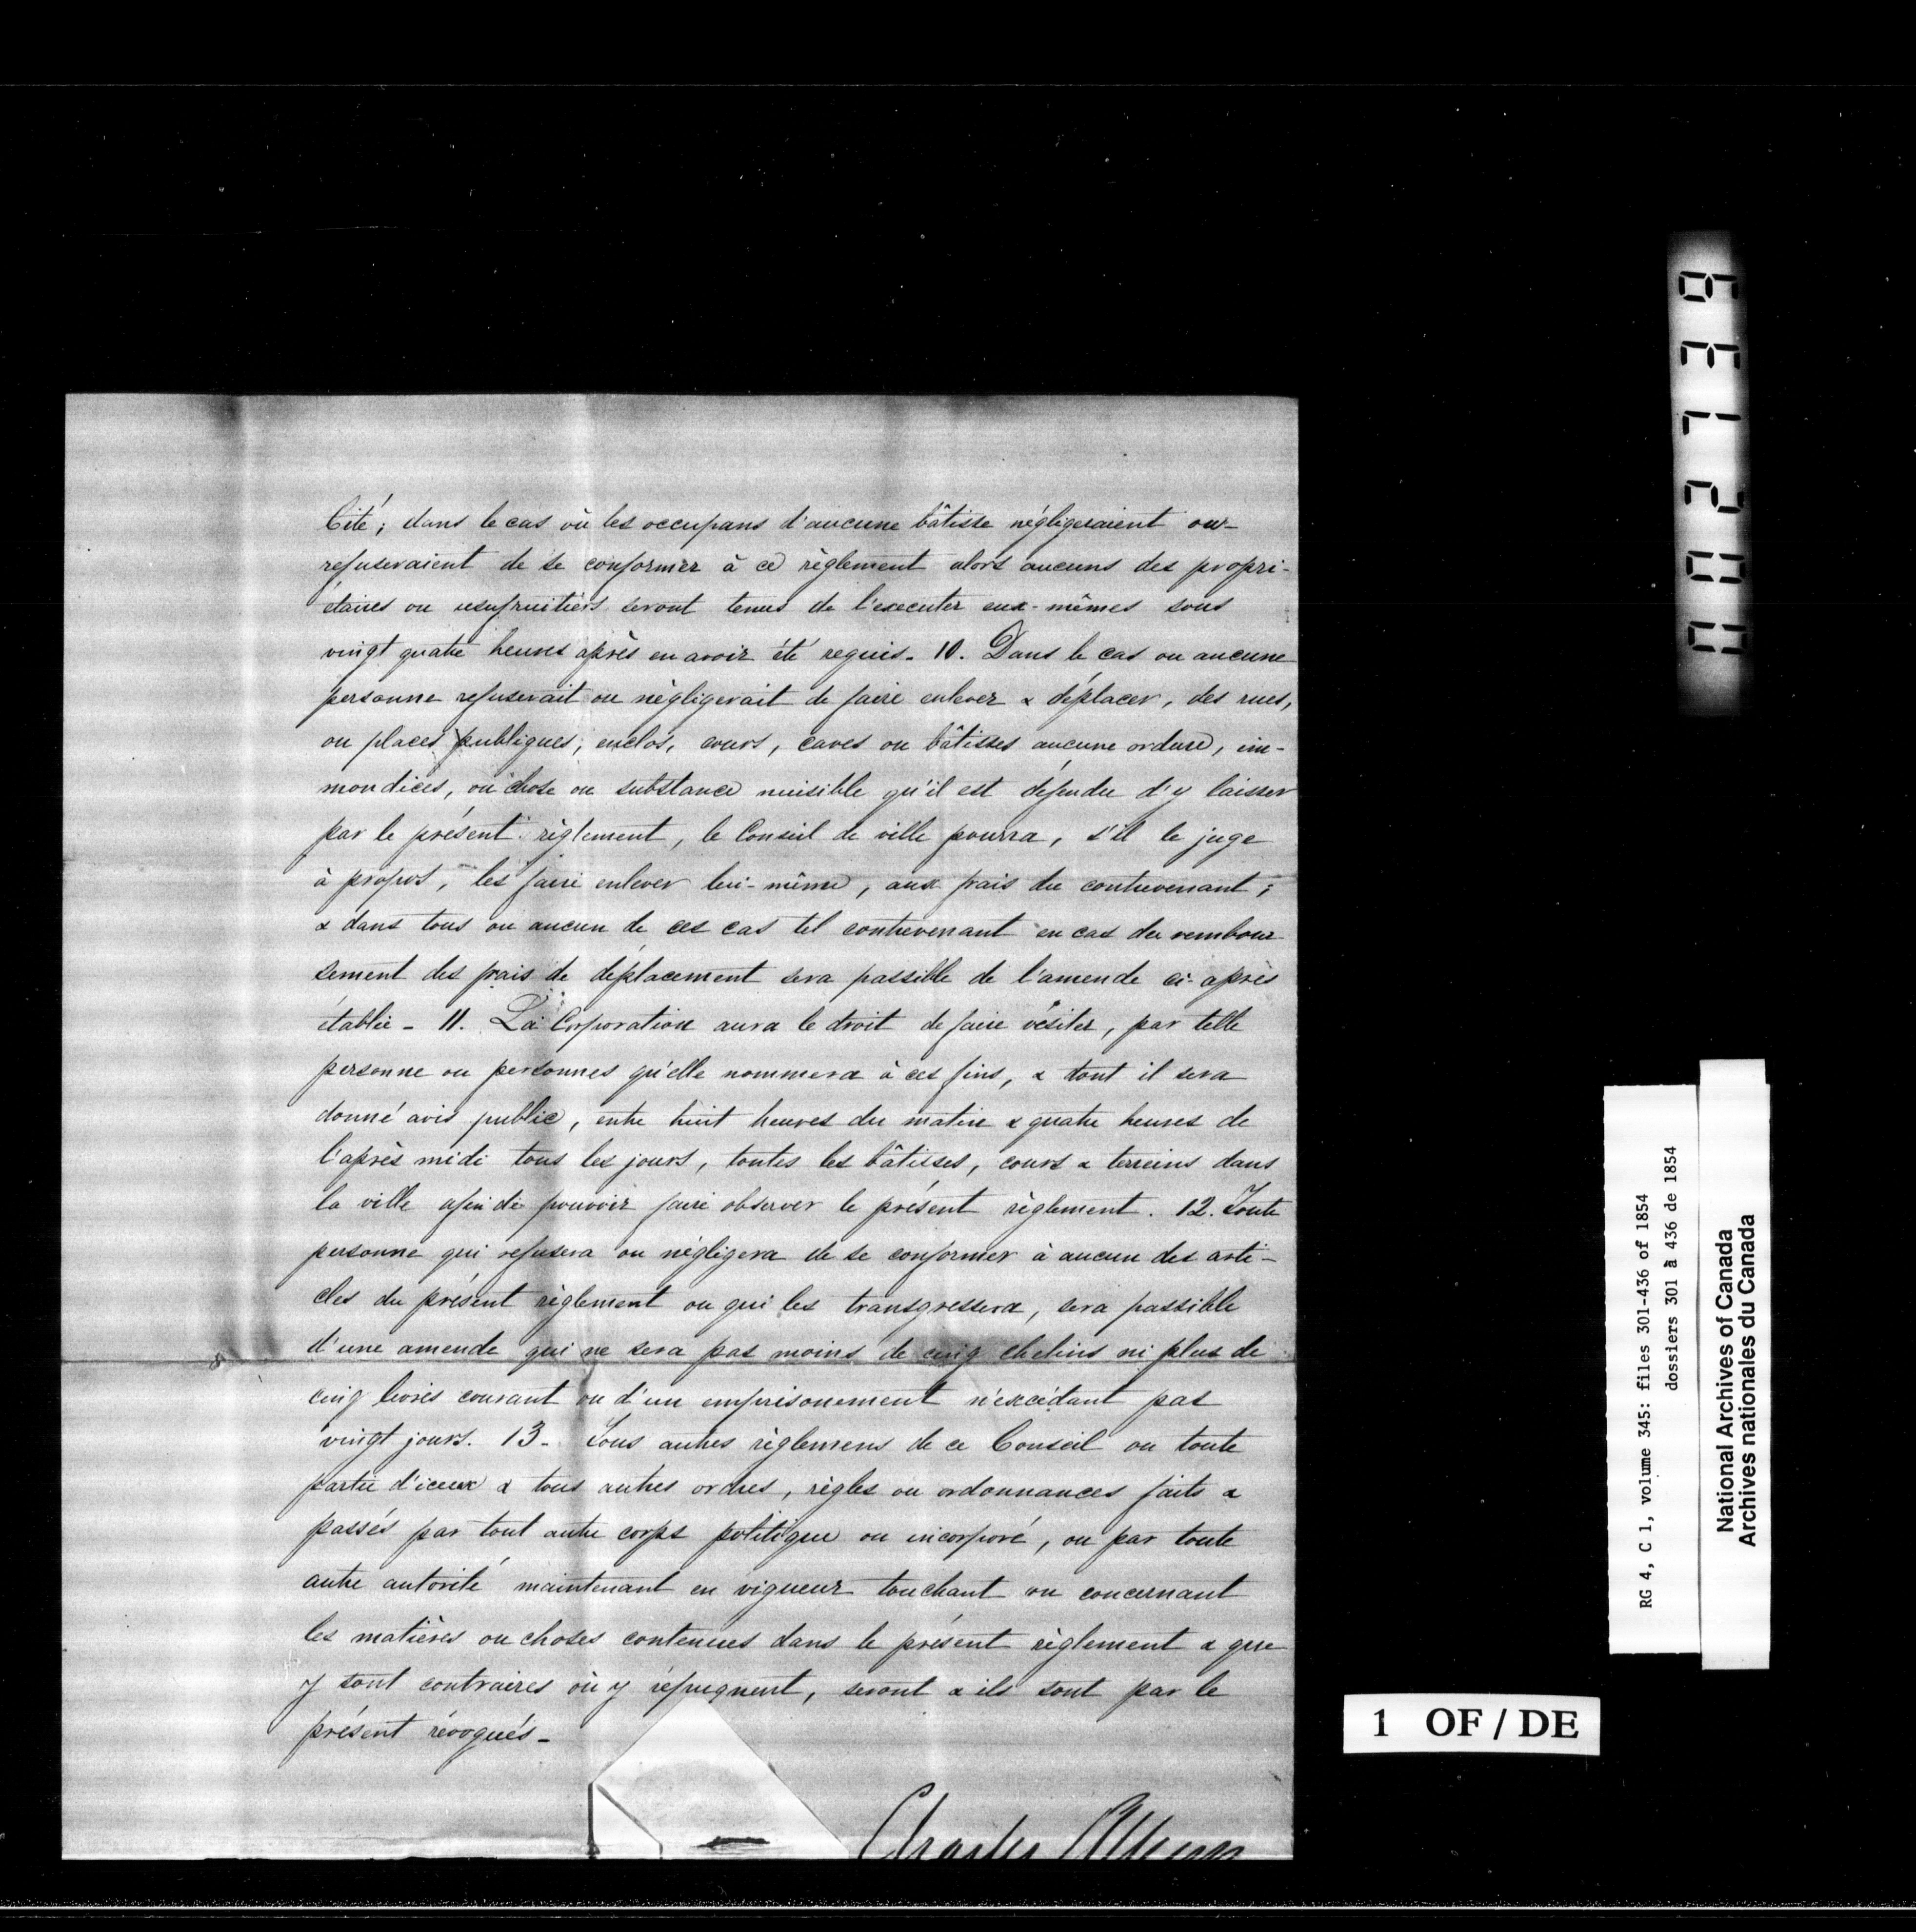 Cité; dans le cas où les occupans d'aucune bâtisse négligeraient ou
refuseraient de se conformer à ce règlement alors aucuns des propri-
étaires ou usufruitiers seront tenus de l'executer eux-mêmes sous
vingt quatre heures après en avoir été requis. 10. Dans le cas ou aucune
personne refuserait ou négligerait de faire enlever & déplacer, des rues,
ou places publiques, enclos, cours, caves ou bâtisses aucune ordure, im-
mondices, ou chose ou substance nuisible qu'il est défendu d'y laisser
par le présent règlement, le Conseil de ville pourra, s'il le juge
à propos, les faire enlever lui-même, aux frais du contrevenant;
& dans tous ou aucun de ces cas tel contrevenant en cas du rembour
sement des frais de déplacement sera passible de l'amende ci-après
établie - 11. La Corporation aura le droit de faire visiter, par telle
personne ou personnes qu'elle nommera à ces fins, & dont il sera
donné avis public, entre huit heures du matin & quatre heures de
l'après midi tous les jours, toutes les bâtisses, cours & terreins dans
la ville afin de pouvoir faire observer le présent règlement. 12. Toute
personne qui refusera ou négligera de se conformer à aucun des arti-
cles du présent règlement ou qui les transgressera, sera passible
d'une amende qui ne sera pas moins de cinq chelins ni plus de
cinq livres courant ou d'un emprisonement n'excédant pas
vingt jours. 13 - Tous autres règlemens de ce Conseil ou toute
partie d'iceux & tous autres ordres, règles ou ordonnances faits &
passés par tout autre corps politique ou incorporé, ou par toute
autre autorité maintenant en vigueur touchant ou concernant
les matières ou choses contenues dans le présent règlement & que
y sont contraires où y répugnent, seront & ils sont par le
présent révoqués -
Charles
002139
RG 4, C 1, volume 345: files 301-436 of 1854
dossiers 301 à 436 de 1854
National Archives of Canada
Archives nationales du Canada
1 OF / DE